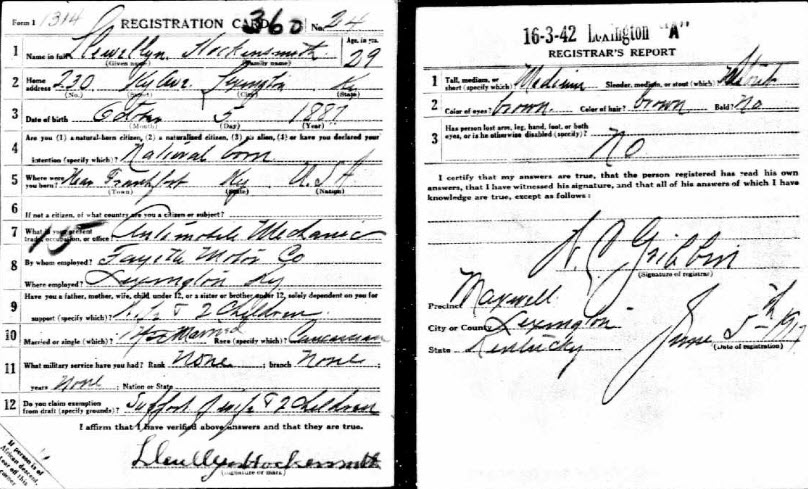 Form 1 1314 REGISTRATION CARD 360 No. 24
1 Name in full Llewellyn Hockensmith Age, in yrs. 29
(Given name) (Family name)
2 Home address 230 Ky Ave. Lexington Ky
(No.) (Street) (City) (State)
3 Date of birth October 5 1887
(Month) (Day) (Year)
4 Are you (1) a natural-born citizen, (2) a naturalized citizen, (3) an alien, (4) or have you declared your
intention (specify which)? Natural born
5 Where were you born? Near Frankfort Ky U.S.A
(Town) (State) (Nation)
6 If not a citizen, of what country are you a citizen or subject?
7 What is your present trade, occupation, or office? 15 Automobile Mechanic
8 By whom employed? Fayette Motor Co
Where employed? Lexington Ky
9 Have you a father, mother, wife, child under 12, or a sister or brother under 12, solely dependent on you for
support (specify which)? Wife & 2 Children
10 Married or single (which)? Married Race (specify which)? Caucasian
11 What military service have you had? Rank None ; branch None ;
years None ; Nation or State
12 Do you claim exemption from draft (specify grounds)? Support of wife & 2 Children
I affirm that I have verified above answers and that they are true.
Llewellyn Hockensmith
(Signature or mark)
If person is of
African descent,
tear off this
corner
16-3-42 Lexington "A"
REGISTRAR'S REPORT
1 Tall, medium, or short (specify which)? Medium Slender, medium, or stout (which)? Stout
2 Color of eyes? brown Color of hair? brown Bald? No
3 Has person lost arm, leg, hand, foot, or both
eyes, or is he otherwise disabled (specify)?
No
I certify that my answers are true, that the person registered has read his own
answers, that I have witnessed his signature, and that all of his answers of which I have
knowledge are true, except as follows:
(Signature of registrar)
Precinct Maxwell
City or County Lexington
State Kentucky June 5th 1917
(Date of registration)